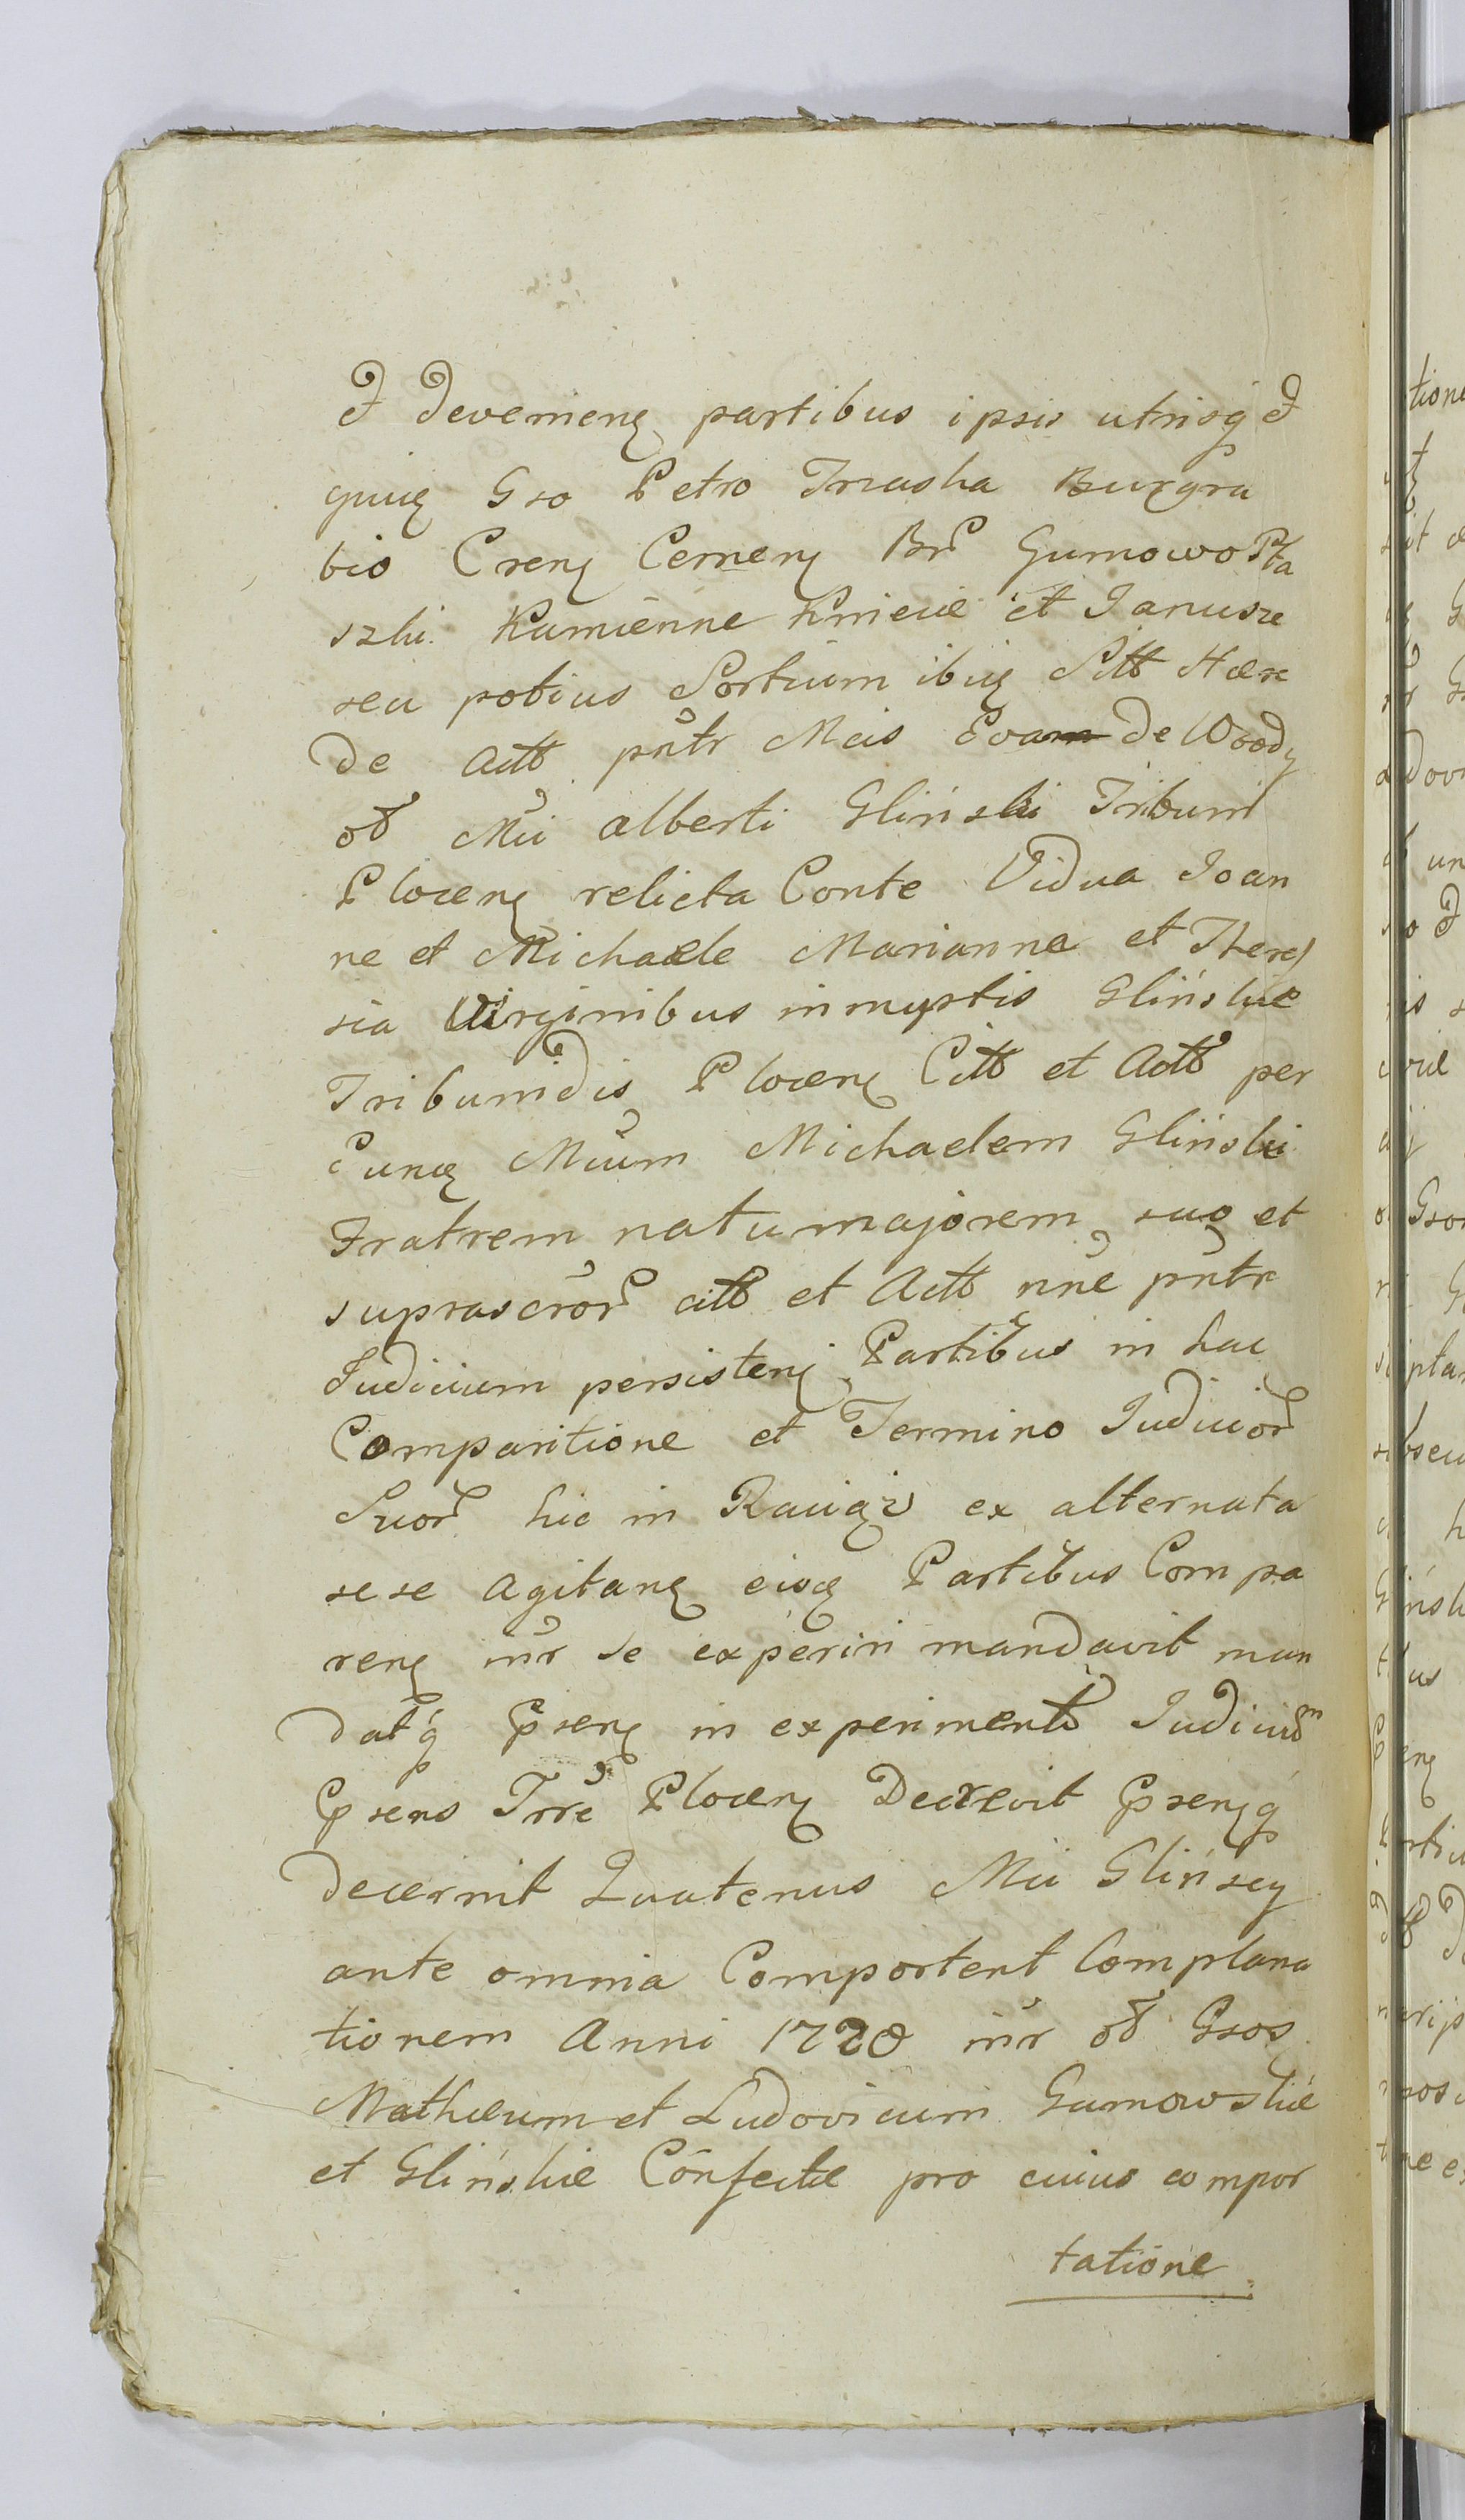 & devenieng partibus ipsis utrisq &
quing Gso Petro Trzaska Burgra
bio Creng Cerneng Br Gumowo Pta
szki Kamienne Kmiecie et Janusze
seu potius Sortium ibiq Sitt Hære
de Actt pntr Meis Eva de Woody
ob Mci Alberti Glinski Tribuni
Ploceng relicta Conte Vidua Joan
ne et Michaele Marianna et There
sia Virginibus innuptis Glinskie
Tribunidis Ploceng Citt et Actt per
Eunq Mcum Michaelem Glinski
Fratrem natu majorem suo et
suprascror citt et Actt nne pntr
Judicium persisteng Partibus in hac
Comparitione et Termino Judicior
Suor hic in Raciąż ex alternata
sese agitang eisq Partibus Compa
reng inr se experiri mandavit man
datq Pseng in experimento Judicium
Psens Trre Ploceng Decrevit Psengq
decernit Quatenus Mci Glinscy
ante omnia Comportent Complana
tionem Anni 1720 inr ob Gsos
Mathæum et Ludovicum Gumowskie
et Glinskie Confectæ pro cuius compor
tatione